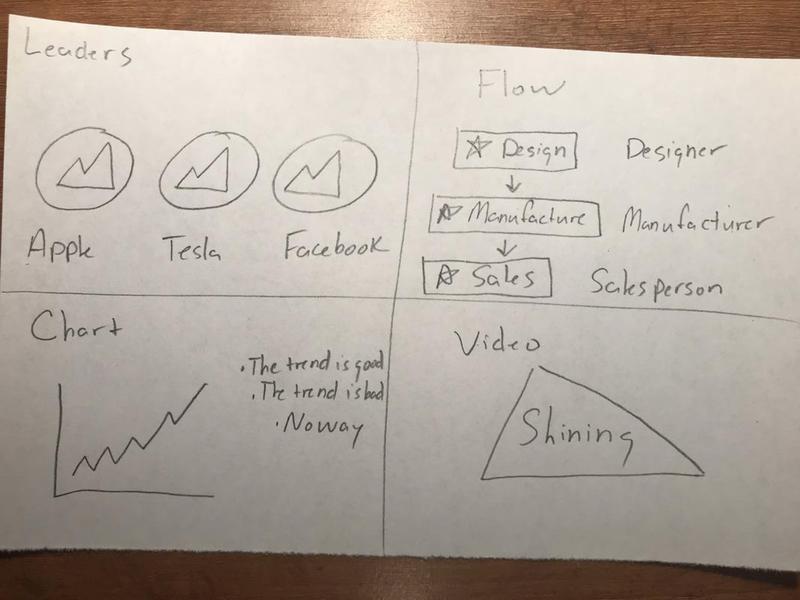 Leaders
Apple Tesla Facebook
Flow
Design Designer
Manufacture Manufacturer
Sales Salesperson
Chart
· The trend is good
· The trend is bad
· Noway
Video
Shining